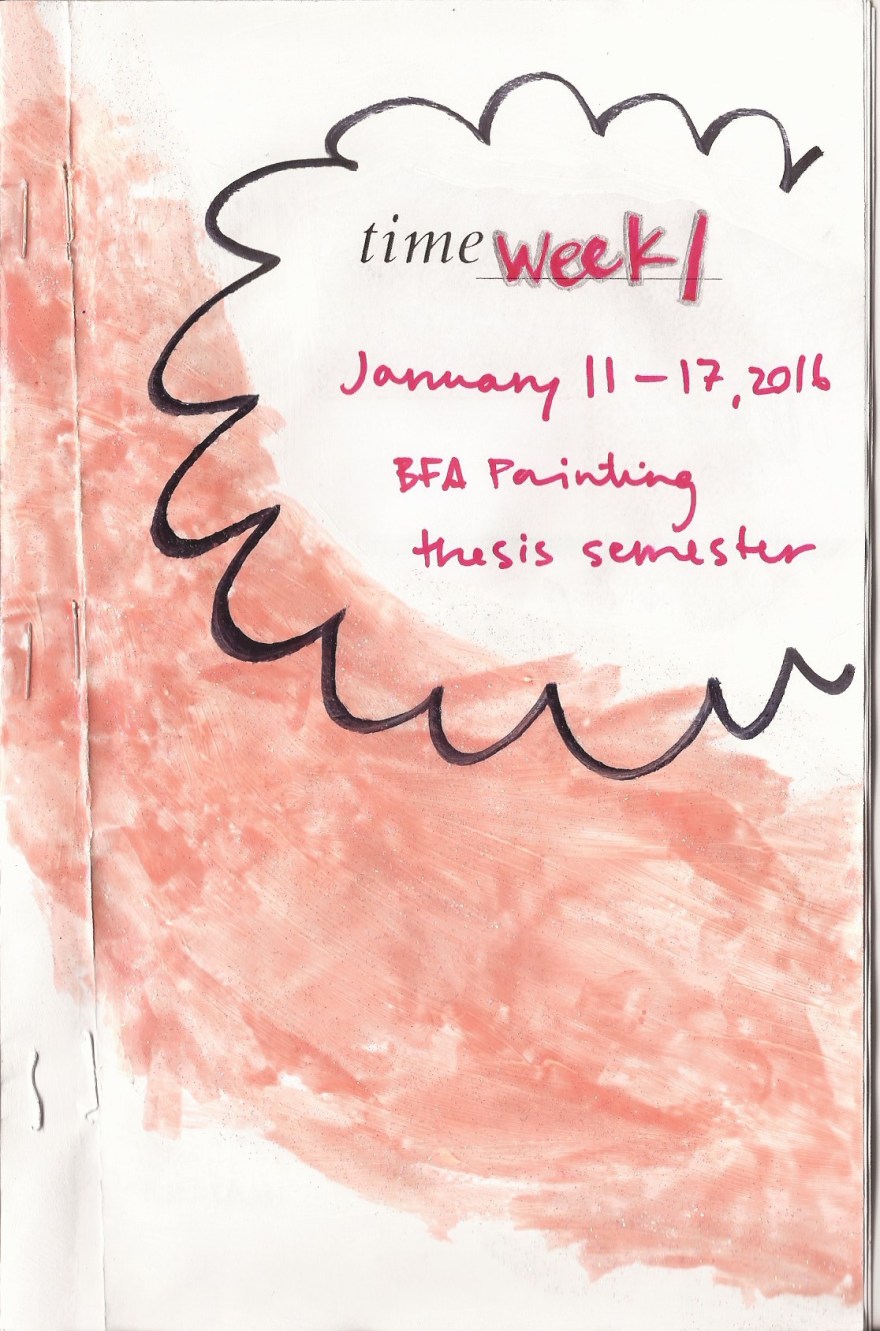 time week 1
January 11-17, 2016
BFA Painting
thesis semester